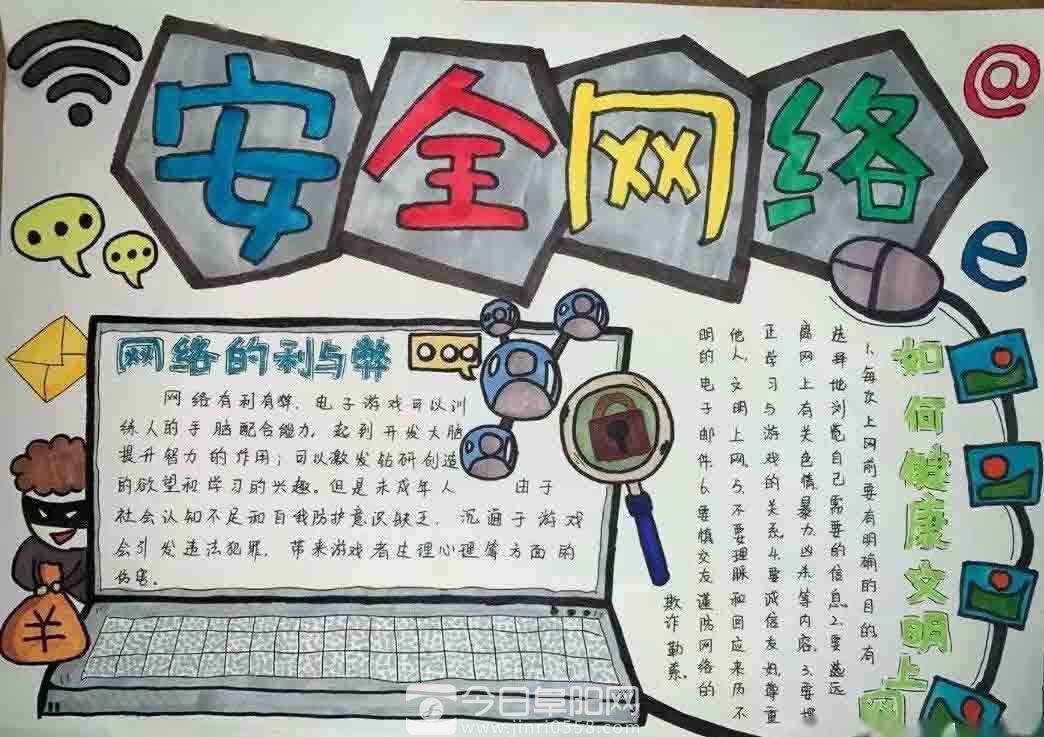 安全网络
@
e
网络的利与弊
网络有利有弊，电子游戏可以训
练人的手脑配合能力，起到开发大脑
提升智力的作用；可以激发钻研创造
的欲望和学习的兴趣。但是未成年人 由于
社会认知不足和自我防护意识缺乏，沉湎于游戏
会引发违法犯罪，带来游戏者生理心理等方面的
伤害。
¥
如何健康文明上网
1.每次上网前要有明确的目的,有
选择地浏览自己需要的信息.2.要远
离网上有关色情、暴力、凶杀等内容。3.要把
正学习与游戏的关系.4.要诚信友好,尊重
他人,文明上网。5.不要理睬和回应来历不
明的电子邮件.6.要慎交友谨防网络的
欺诈勒索。
今日阜阳网
www.jinri0558.com